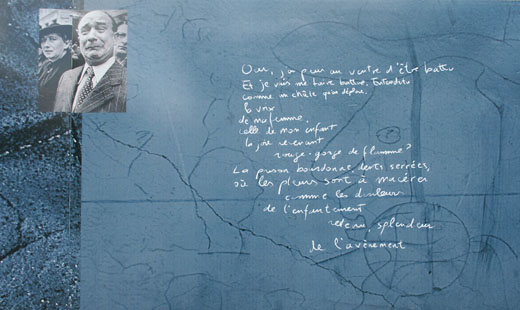 Oui, j'ai peur au ventre d'être battu
Et je vais me faire battre. Entendu
comme un châle gris déplié,
la voix
de ma femme,
celle de mon enfant
la joie revenant
rouge-gorge de flamme ?
La prison bourdonne, dents serrées,
où les pleurs sont à macérer
comme les douleurs
de l'enfantement
retenu, splendeur
de l'avènement